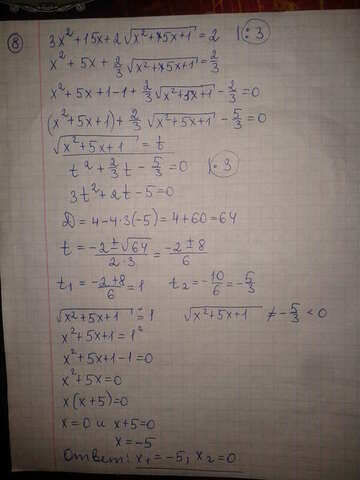 ⑧ 3x²+15x+2√(x²+5x+1)=2 |:3
x²+5x+2/3√(x²+5x+1)=2/3
x²+5x+1-1+2/3√(x²+5x+1)-2/3=0
(x²+5x+1)+2/3√(x²+5x+1)-5/3=0
√(x²+5x+1)=t
t²+2/3t-5/3=0 |·3
3t²+2t-5=0
D=4-4·3(-5)=4+60=64
t=(-2±√64)/(2·3)=(-2±8)/6
t₁=(-2+8)/6=1 t₂=-10/6=-5/3
√(x²+5x+1)=1 √(x²+5x+1)≠-5/3<0
x²+5x+1=1²
x²+5x+1-1=0
x²+5x=0
x(x+5)=0
x=0 и x+5=0
x=-5
Ответ: x₁=-5, x₂=0